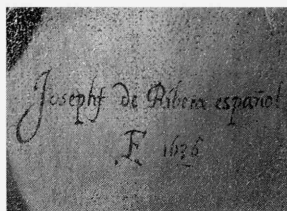 Josephf de Ribera español
F 1636